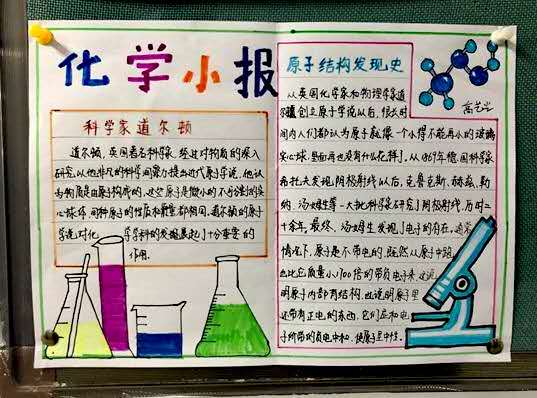 化学小报
科学家道尔顿
道尔顿，英国著名科学家，经过对物质的深入
研究，以他非凡的科学洞察力提出近代原子学说，他认
为物质是由原子构成的，这些原子是微小的不可分割的实
心球体，同种原子的性质和质量都相同，道尔顿的原子
学说对化学学科的发展起了十分重要的
作用.
原子结构发现史
从英国化学家和物理学家道
尔顿创立原子学说以后，很长时
间内人们都认为原子就像一个小得不能再小的玻璃
实心球，里面再也没有什么花样了。从1869年德国科学家
希托夫发现阴极射线以后，克鲁克斯、赫兹、勒
纳、汤姆生等一大批科学家研究了阴极射线，历时二
十余年，最终，汤姆生发现了电子的存在，通常
情况下，原子是不带电的，既然从原子中跑
出比它质量小1700倍的带负电子来，这说
明原子内部有结构，也说明原子里
还带有正电的东西，它们应和电
子所带的负电中和，使原子呈中性.